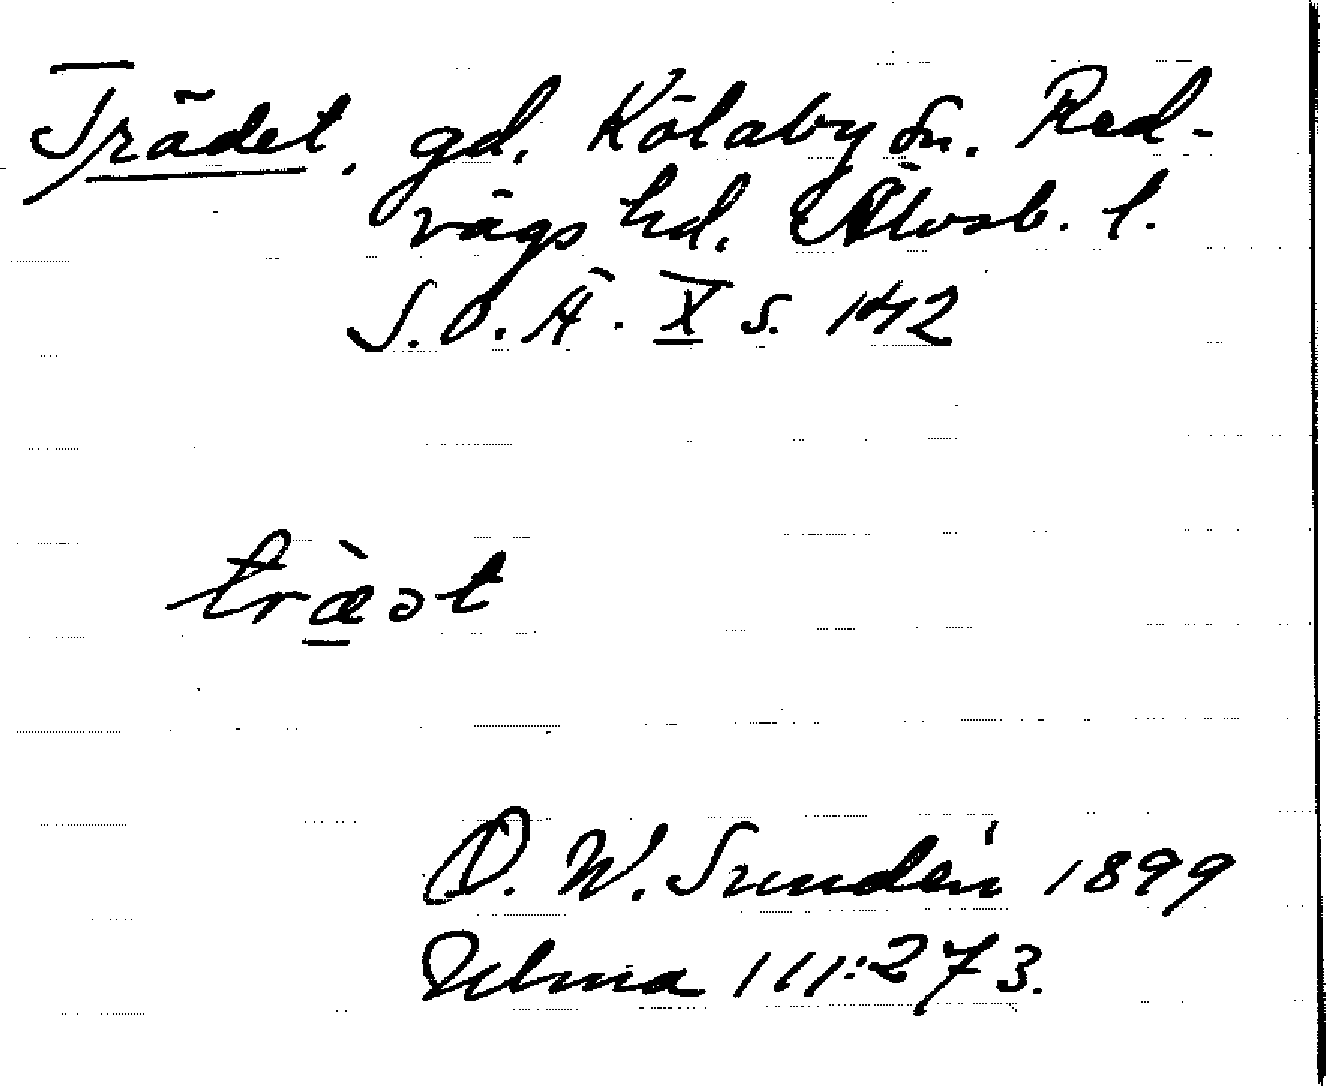 Trädet, gd. Kölaby sn. Red-
vägs hd. Älvsb. l.
S.O.Ä. X s. 142
træ̀ət
D. W. Sundén 1899
Ulma 111:273.